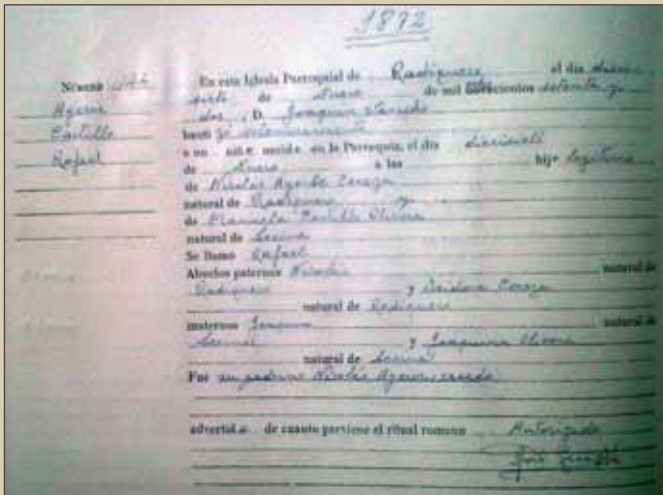 1872
Número 144 En esta Iglesia Parroquial de Radiquero el día
Ayerbe siete de Enero de mil ochocientos setenta y
Castillo dos, D. Joaquín
Rafael bauticé solemnemente
a un niño nacido en la Parroquia, el día
de Enero a las hijo legítimo
de Nicolás Ayerbe Cereza
natural de Radiquero y
de Manuela Castillo Olivera
natural de Lecina
Se llamó Rafael
Abuelos paternos Nicolás natural de
Radiquero y Isidora Cereza
natural de Radiquero
maternos Joaquín natural de
Lecina y Joaquina Olivera
natural de Lecina
Fue su padrino Nicolás Ayerbe casado
advertido de cuanto previene el ritual romano Autorizado
José